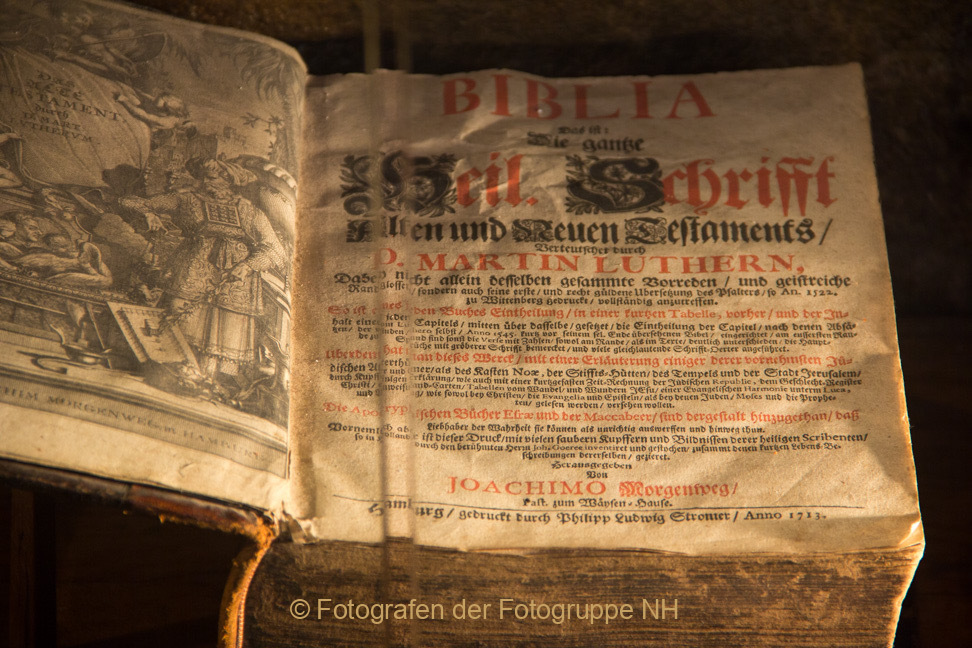 Das
ALTE
TESTAMENT,
durch
D. MART.
LUTHERUM.
BIBLIA
Das ist:
Die gantze
Heil. Schrifft
Alten und Neuen Testaments/
Verteutschet durch
D. MARTIN LUTHERN,
allein desselben gesammte Vorreden/ und geistreiche
sondern auch seine erste/ und recht güldene Ubersetzung des Psalters/ so An. 1522.
zu Wittenberg gedruckt/ vollständig anzutreffen.
So ist den Buches Eintheilung/ in einer kurtzen Tabelle, vorher/ und der In-
halt eine Capitels/ mitten über dasselbe/ gesetzet/ die Eintheilung der Capitel/ nach denen Absä-
selbst/ Anno 1545. kurtz vor seinem sel. Ende übersehenen Bibel/ eingerichtet/ am eussersten Ran-
de und die Verse mit Zahlen/ sowol am Rande/ als im Texte/ deutlich unterschieden/ die Haupt-
mit gröberer Schrifft bemercket/ und viele gleichlautende Schrifft-Oerter angeführet.
Uberdem hat man dieses Werck/ mit einer Erläuterung einiger derer vornehmsten Jü-
dischen als des Kasten Noæ, der Stiffts-Hütten/ des Tempels und der Stadt Jerusalem/
durch wie auch mit einer kurtzgefasten Zeit-Rechnung der Jüdischen Republic, dem Geschlecht-Register
Christi/ Tabellen vom Wandel/ und Wundern JEsu/ einer Evangelischen Harmonie unterm Luca,
wie sowol bey Christen/ die Evangelia und Episteln/ als bey denen Juden/ Moses und die Prophe-
ten/ gelesen werden/ versehen wollen.
Die Apocryphischen Bücher Esræ und der Maccabeer/ sind dergestalt hinzugethan/ daß
Liebhaber der Wahrheit sie können als unrichtig auswerffen und hinweg thun.
Vornemlich ist dieser Druck/ mit vielen saubern Kupffern und Bildnissen derer heiligen Scribenten/
so in Holland durch den berühmten Herrn Goeree inventiret und gestochen/ zusammt denen kurtzen Lebens-Be-
schreibungen dererselben/ gezieret.
Herausgegeben
Von
JOACHIMO Morgenweg/
Past. zum Wäysen-Hause.
Hamburg/ gedruckt durch Philipp Ludwig Stromer/ Anno 1713.
© Fotografen der Fotogruppe NH